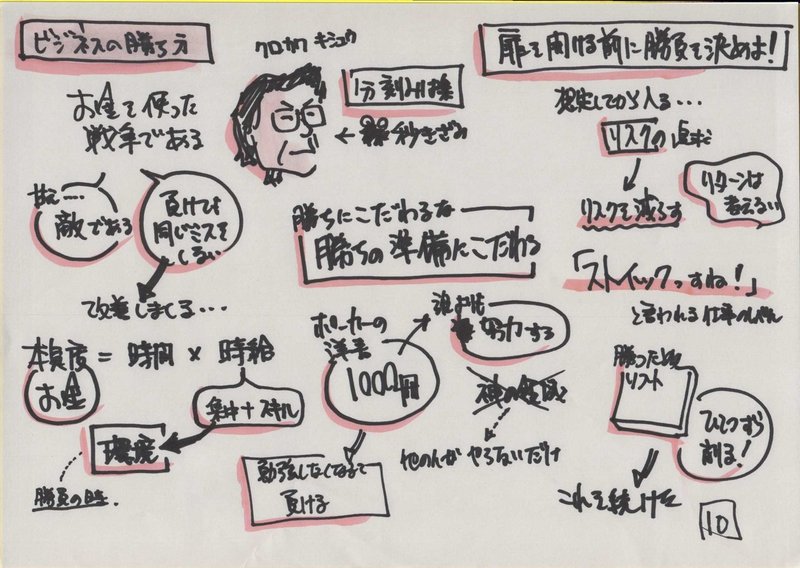 ビジネスの勝ち方
お金を使った
戦争である
甘え……
敵である
負けても
同じミスを
しない
改善しまくる…
本気度 = 時間 × 時給
お金
集中＋スキル
環境
勝負の時
クロカワ キシュウ
1分刻みは損
← 秒きざみ
勝ちにこだわるな
勝ちの準備にこだわる
ポーカーの
洋書
1000冊
努力する
勉強しなくなると
負ける
他の人が やらないだけ
扉を開ける前に勝負を決めよ!
想定してから入る…
リスクの追求
リスクを減らす
リターンは
考えない
「ストイックっすね!」
と言われる仕事のレベル
勝つための
リスト
ひとつずつ
削る!
これを続けた
10